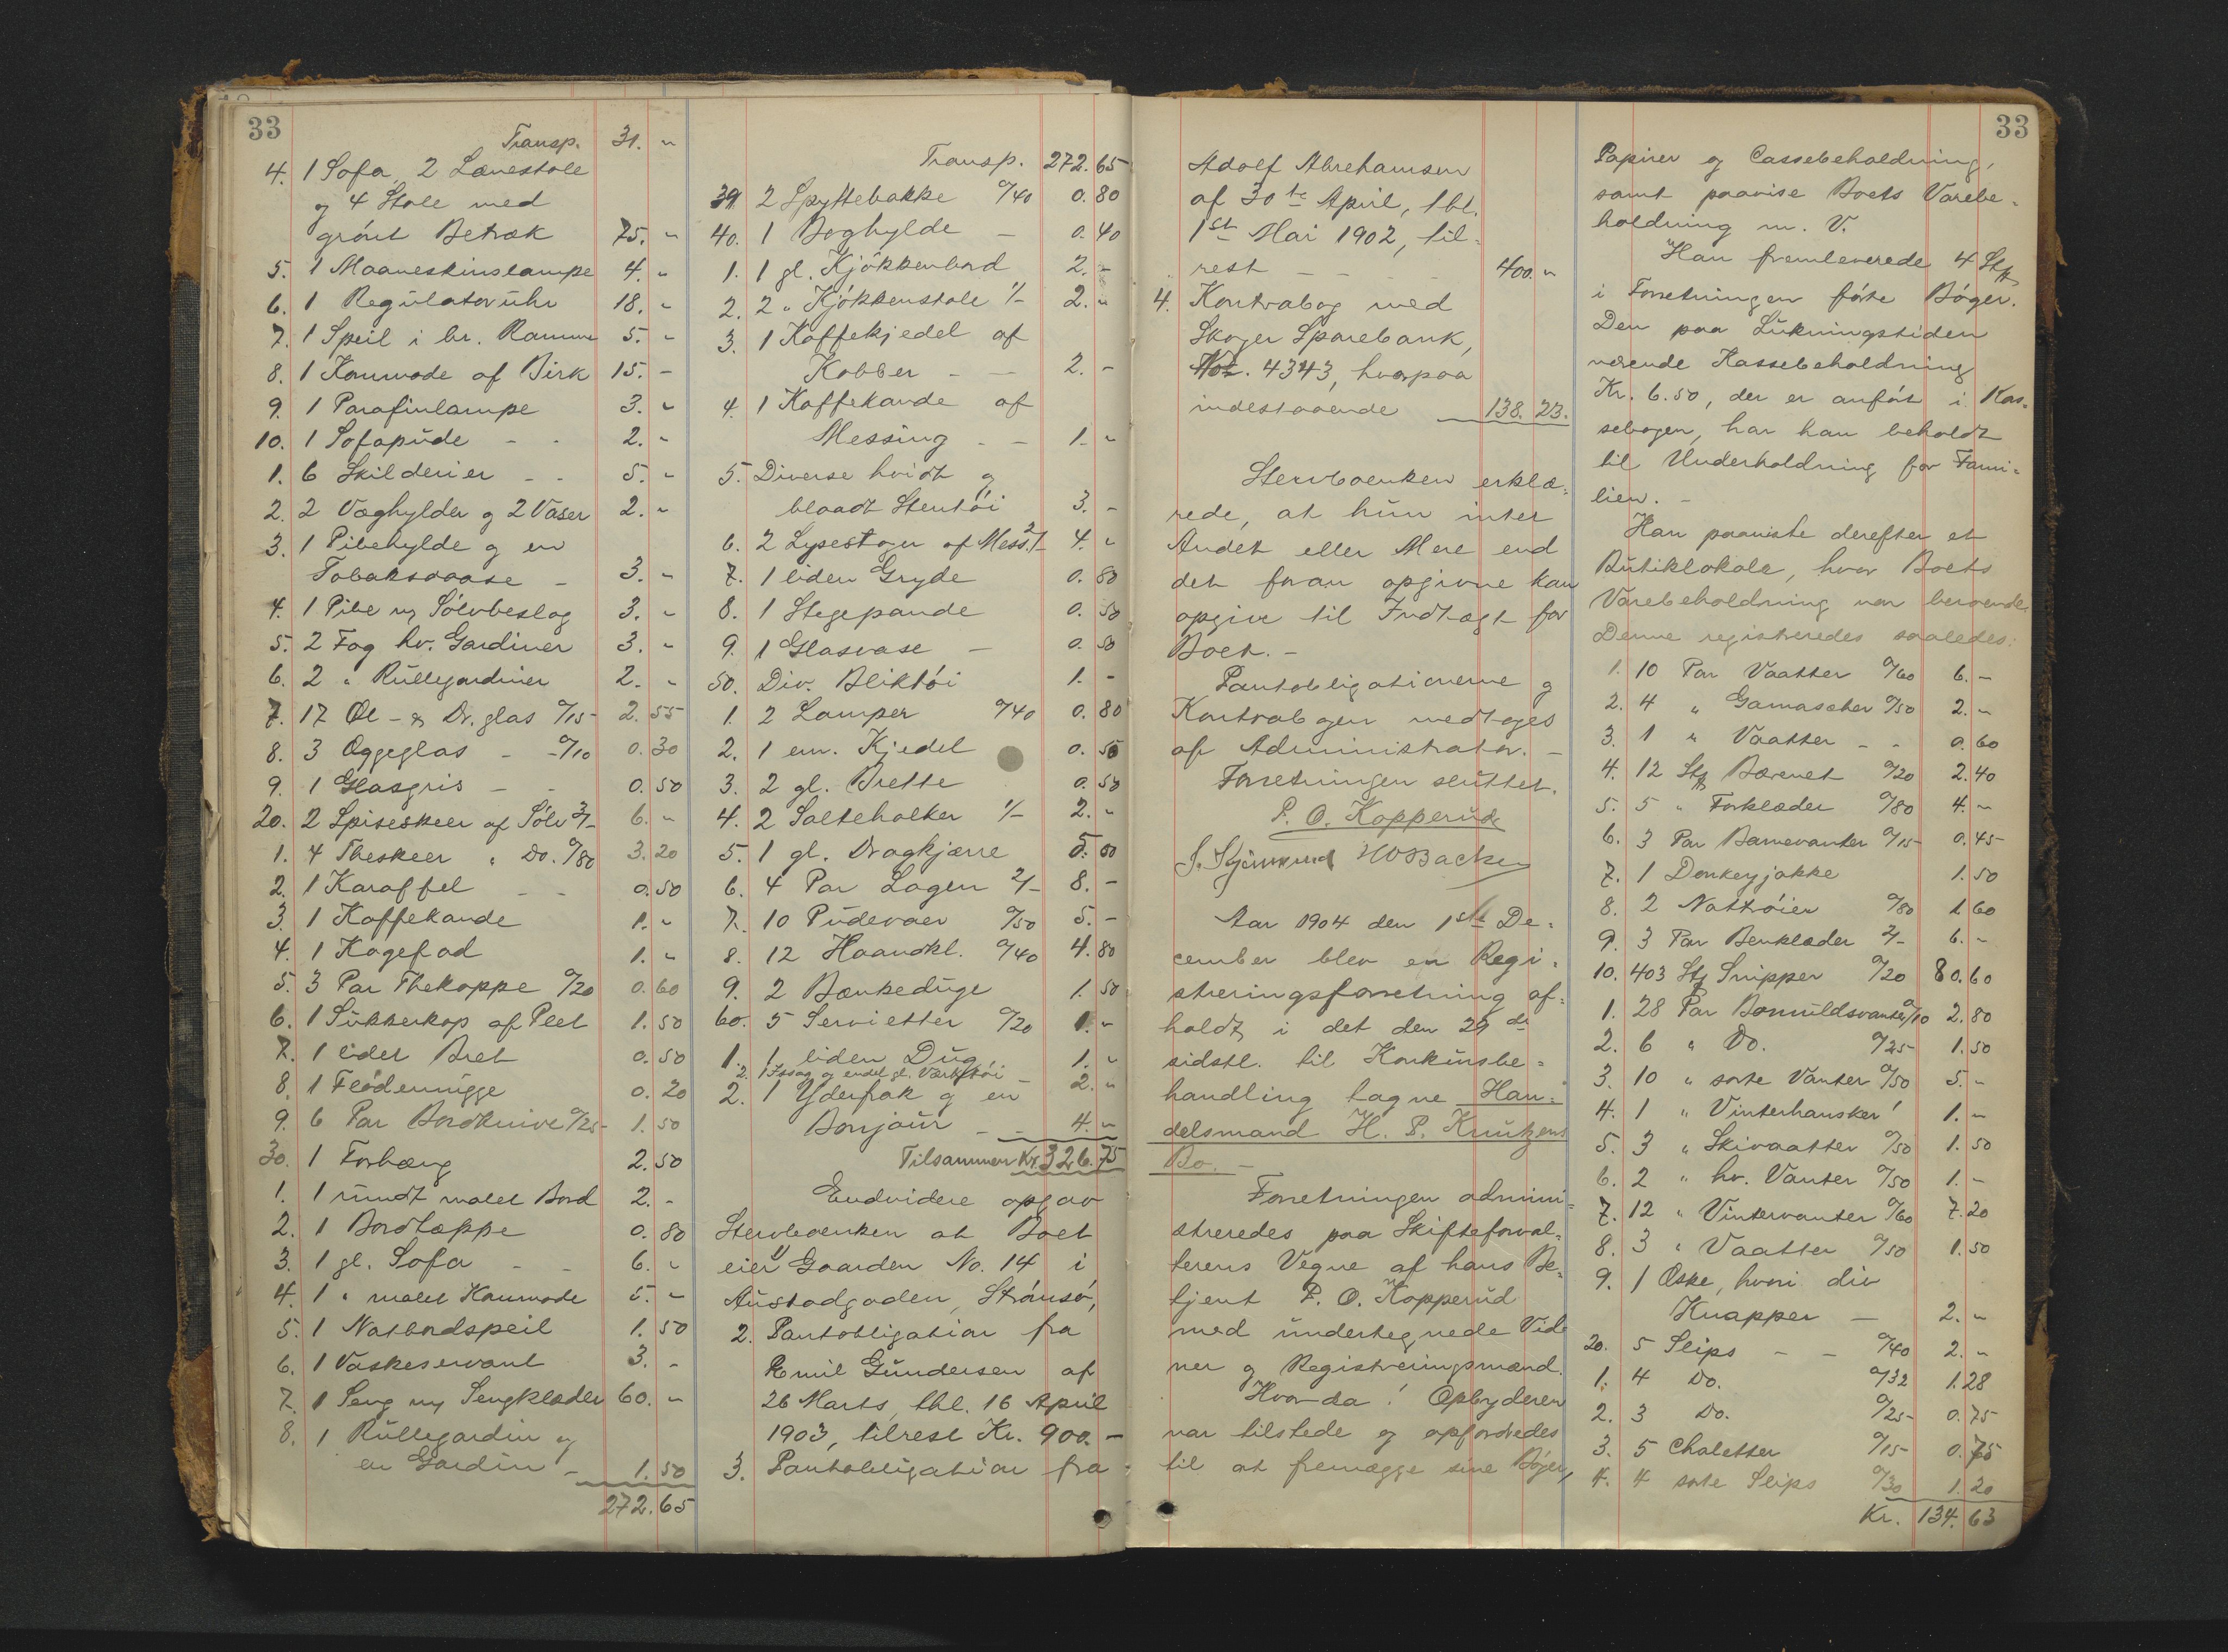 33
Transp. 31. "
4. 1 Sofa, 2 Lænestole
og 4 Stole med
grönt Betræk 75. "
5. 1 Maaneskinslampe 4. "
6. 1 Regulatoruhr 18. "
7. 1 Speil i br. Ramme 5. "
8. 1 Kommode af Birk 15. -
9. 1 Parafinlampe 3. "
10. 1 Sofapude - - 2. "
1. 6 Skilderier - - 5. "
2. 2 Væghylder og 2 Vaser 2. "
3. 1 Pibehylde og en
Tobaksdaase - 3. "
4. 1 Pibe m/ Sölvbeslag 3. "
5. 2 Fag hv. Gardiner 3. "
6. 2 " Rullegardiner 2. "
7. 17 Øl- & Dr. glas 0/15 2.55
8. 3 Æggeglas - - 0/10 0.30
9. 1 Glasgris - - 0.50
20. 2 Spiseskeer af Sölv 3/- 6. "
1. 4 Theskeer " Do. 0/80 3.20
2. 1 Karaffel - - 0.50
3. 1 Kaffekande 1. "
4. 1 Kagefad 1. "
5. 3 Par Thekoppe 0/20 0.60
6. 1 Sukkerkop af Plet 1.50
7. 1 lidet Bret 0.50
8. 1 Flödemugge 0.20
9. 6 Par Bordknive 0/25 1.50
30. 1 Forhæng 2.50
1. 1 rundt malet Bord 2. -
2. 1 Bordtæppe 0.80
3. 1 gl. Sofa - - 6. "
4. 1 " malet Kommode 5. "
5. 1 Natbordspeil 1.50
6. 1 Vaskeservant 3. -
7. 1 Seng m/ Sengklæder 60. "
8. 1 Rullegardin og
en Gardin - 1.50
272.65
Transp. 272.65
39 2 Spyttebakke 0/40 0.80
40. 1 Boghylde - 0.40
1. 1 gl. Kjökkenbord 2. -
2. 2 " Kjökkenstole 1/- 2. "
3. 1 Kaffekjedel af
Kobber - - 2. -
4. 1 Kaffekande af
Messing - - 1. "
5. Diverse hvidt og
blaadt Stentöi 3. -
6. 2 Lysestager af Mess. 2/- 4. "
7. 1 liden Gryde 0.80
8. 1 Stegepande 0.50
9. 1 Glasvase - 0.50
50. Div. Bliktöi 1. -
1. 2 Lamper 0/40 0.80
2. 1 em. Kjedel 0.50
3. 2 gl. Brette 0.50
4. 2 Salteholker 1/- 2. "
5. 1 gl. Dragkjærre 5.50
6. 4 Par Lagen 2/- 8. -
7. 10 Pudevaer 0/50 5. -
8. 12 Haandkl. 0/40 4.80
9. 2 Bænkeduge 1.50
60. 5 Servietter 0/20 1. "
1. 1 liden Dug 1. "
2. 1 Issag og endel gl. Værktöi - 2. "
2. 1 Yderfrak og en
Bonjour - - 4. "
Tilsammen Kr. 326.75
Endvidere opgav
Stervboenken at Boet
eier 1/ Gaarden No. 14 i
Austadgaden, Strömsö,
2. Pantobligation fra
Emil Gundersen af
26 Marts, thl. 16 April
1903, tilrest Kr. 900. -
3. Pantobligation fra
Adolf Abrehamsen
af 30te April, thl.
1st Mai 1902, til-
rest - - - - 400. "
4. Kontrabog med
Skoger Sparebank,
No. 4343, hvorpaa
indestaaende 138.23.
Stervboenken erklæ-
rede, at hun intet
Andet eller Mere end
det foran opgivne kan
opgive til Indtægt for
Boet. -
Pantobligationerne og
Kontrabogen medtoges
af Administrator. -
Forretningen sluttet.
P. O. Kopperud
HO Backen
Aar 1904 den 1ste De-
cember blev en Regi-
streringsforretning af-
holdt i det den 29de
sidstl. til Konkursbe-
handling tagne Han-
delsmand H. P. Knutzens
Bo. -
Forretningen admini-
streredes paa Skifteforval-
terens Vegne af hans Be-
tjent P. O. Kopperud
med undertegnede Vid-
ner og Registreringsmænd.
Hvor da! Opbyderen
var tilstede og opfordredes
til at fremlægge sine Böger,
33
Papirer og Cassebeholdning,
samt paavise Boets Varebe-
holdning m. V.
Han fremleverede 4 Stk
i Forretningen förte Böger.
Den paa Lukningstiden
værende Kassebeholdning
Kr. 6.50, der er anfört i Kas-
sebogen, har han beholdt
til Underholdning for Fami-
lien. -
Han paaviste derefter et
Butiklokale, hvor Boets
Varebeholdning var beroende.
Denne registreredes saaledes:
1. 10 Par Vaatter 0/60 6. -
2. 4 " Gamascher 0/50 2. "
3. 1 " Vaatter - - 0.60
4. 12 Stk Bærenet 0/20 2.40
5. 5 " Forklæder 0/80 4. "
6. 3 Par Barnevanter 0/15 0.45
7. 1 Donkeyjakke 1.50
8. 2 Nattröier 0/80 1.60
9. 3 Par Benklæder 2/- 6. -
10. 403 Stk Snipper 0/20 80.60
1. 28 Par Bomuldsvanter 0/10 2.80
2. 6 " Do. 0/25 1.50
3. 10 " sorte Vanter 0/50 5. -
4. 1 " Vinterhansker 1. -
5. 3 " Skivaatter 0/50 1.50
6. 2 " hv. Vanter 0/50 1. -
7. 12 " Vintervanter 0/60 7.20
8. 3 " Vaatter 0/50 1.50
9. 1 Æske, hvori div
Knapper - 2. "
20. 5 Slips - - 0/40 2. "
1. 4 Do. 0/32 1.28
2. 3 Do. 0/25 0.75
3. 5 Chaletter 0/15 0.75
4. 4 sorte Slips 0/30 1.20
Kr. 134.63